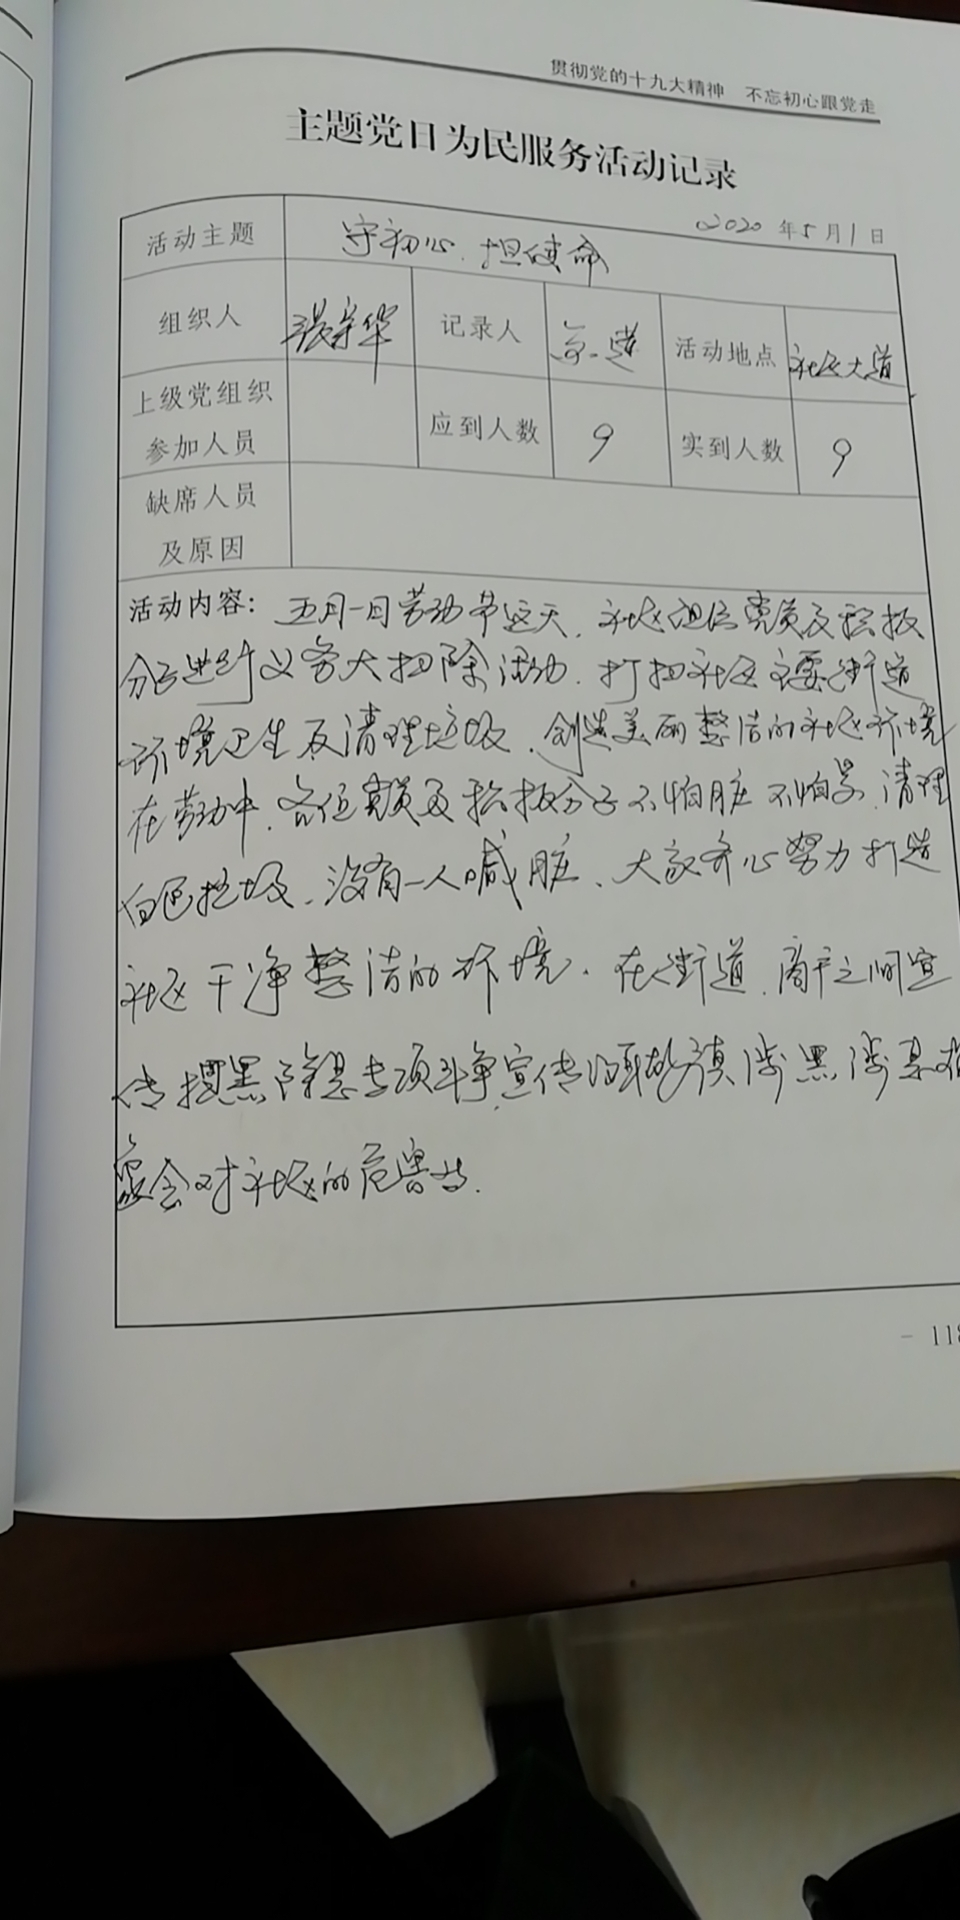 贯彻党的十九大精神 不忘初心跟党走
主题党日为民服务活动记录
2020年5月1日
活动主题 守初心.担使命
组织人 张宗华 记录人 活动地点 社区大道
上级党组织参加人员 应到人数 9 实到人数 9
缺席人员及原因
活动内容：五月一日劳动节这天.社区组织党员及积极
分子进行义务大扫除活动.打扫社区主要街道
环境卫生及清理垃圾.创造美丽整洁的社区环境
在劳动中.各位党员及积极分子不怕脏不怕累.清理
白色垃圾.没有一人喊脏、大家齐心努力打造
社区干净整洁的环境.在街道.商户之间宣
传扫黑除恶专项斗争.宣传 涉黑涉恶
会对社区的危害性.
- 118